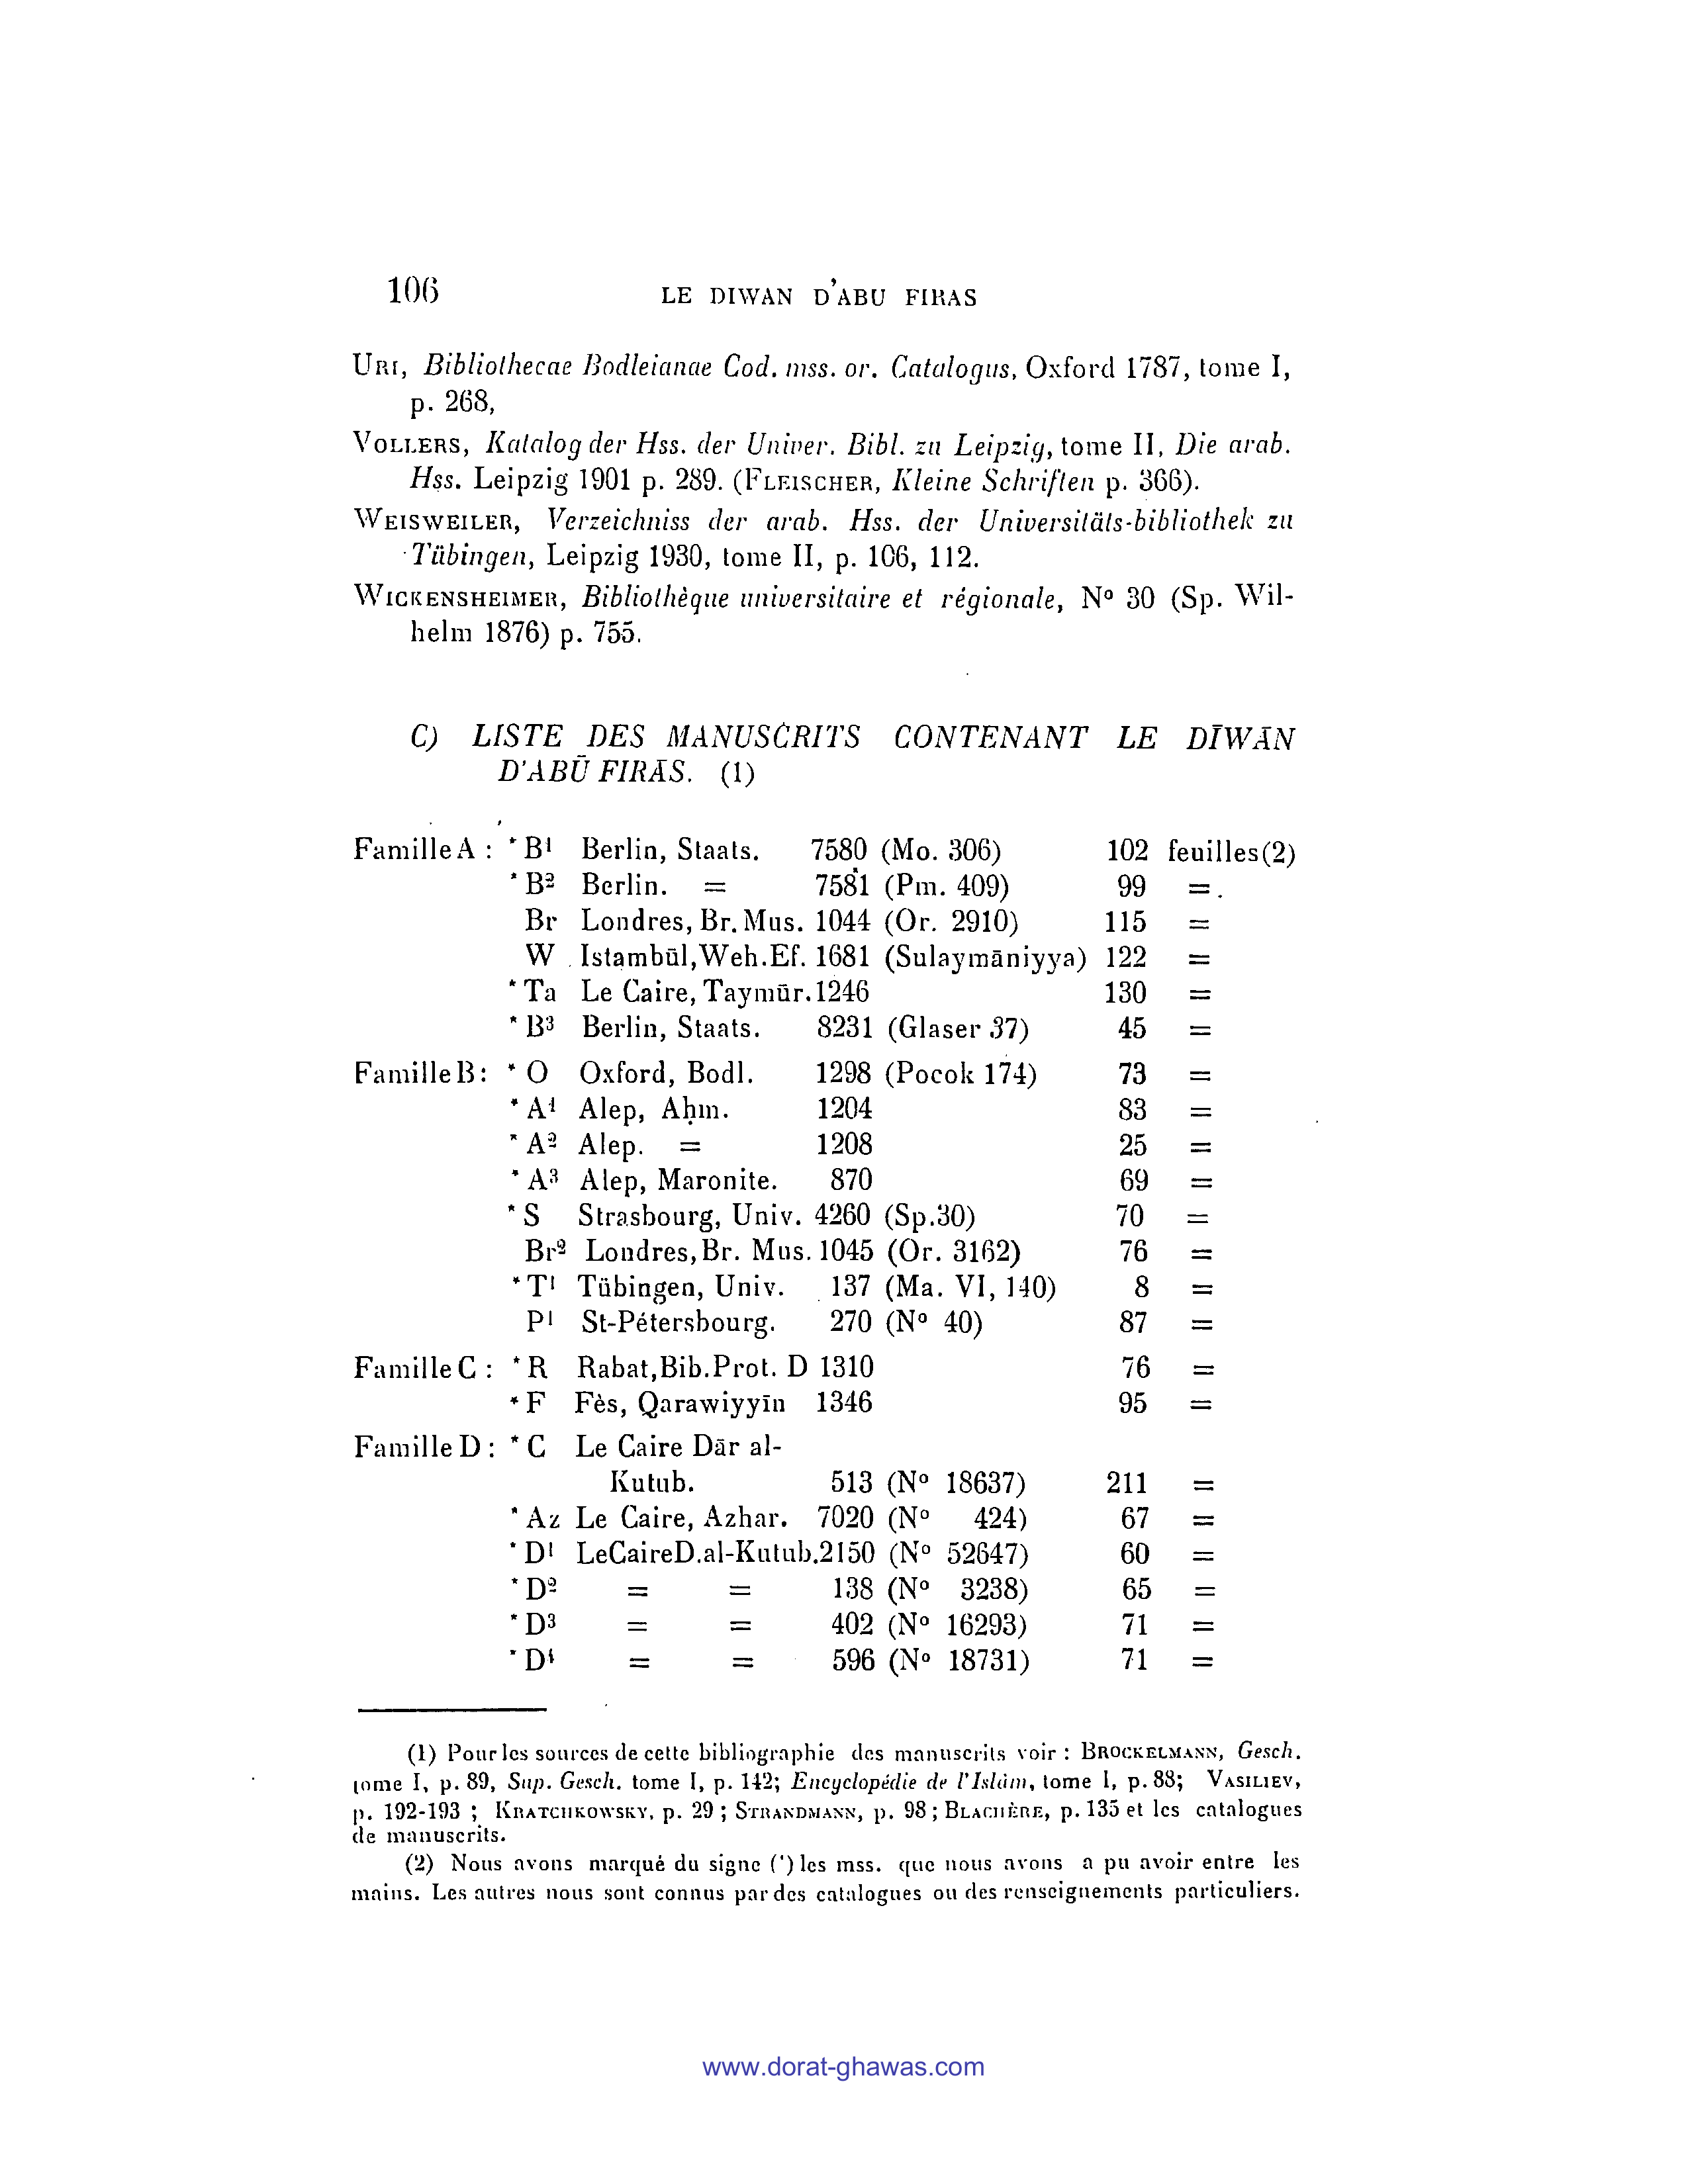 106 LE DIWAN D'ABU FIRAS
URI, Bibliothecae Bodleianae Cod. mss. or. Catalogus, Oxford 1787, tome I,
p. 268,
VOLLERS, Katalog der Hss. der Univer. Bibl. zu Leipzig, tome II, Die arab.
Hss. Leipzig 1901 p. 289. (FLEISCHER, Kleine Schriften p. 366).
WEISWEILER, Verzeichniss der arab. Hss. der Universitäts-bibliothek zu
Tübingen, Leipzig 1930, tome II, p. 106, 112.
WICKENSHEIMER, Bibliothèque universitaire et régionale, Nº 30 (Sp. Wil-
helm 1876) p. 755.
C) LISTE DES MANUSCRITS CONTENANT LE DĪWĀN
D'ABŪ FIRĀS. (1)
Famille A : * B¹ Berlin, Staats. 7580 (Mo. 306) 102 feuilles (2)
* B² Berlin. = 7581 (Pm. 409) 99 =.
Br Londres, Br. Mus. 1044 (Or. 2910) 115 =
W Istambūl, Weh.Ef. 1681 (Sulaymāniyya) 122 =
* Ta Le Caire, Taymūr. 1246 130 =
* B³ Berlin, Staats. 8231 (Glaser 37) 45 =
Famille B : * O Oxford, Bodl. 1298 (Pocok 174) 73 =
* A¹ Alep, Aḥm. 1204 83 =
* A² Alep. = 1208 25 =
* A³ Alep, Maronite. 870 69 =
* S Strasbourg, Univ. 4260 (Sp.30) 70 =
Br² Londres, Br. Mus. 1045 (Or. 3162) 76 =
* T¹ Tübingen, Univ. 137 (Ma. VI, 140) 8 =
P¹ St-Pétersbourg. 270 (Nº 40) 87 =
Famille C : * R Rabat, Bib.Prot. D 1310 76 =
* F Fès, Qarawiyyīn 1346 95 =
Famille D : * C Le Caire Dār al-
Kutub. 513 (Nº 18637) 211 =
* Az Le Caire, Azhar. 7020 (Nº 424) 67 =
* D¹ Le Caire D. al-Kutub. 2150 (Nº 52647) 60 =
* D² = = 138 (Nº 3238) 65 =
* D³ = = 402 (Nº 16293) 71 =
* D⁴ = = 596 (Nº 18731) 71 =
(1) Pour les sources de cette bibliographie des manuscrits voir : BROCKELMANN, Gesch.
tome I, p. 89, Sup. Gesch. tome I, p. 142; Encyclopédie de l'Islām, tome I, p. 88; VASILIEV,
p. 192-193 ; KRATCHKOWSKY, p. 29 ; STRANDMANN, p. 98 ; BLACHÈRE, p. 135 et les catalogues
de manuscrits.
(2) Nous avons marqué du signe (*) les mss. que nous avons a pu avoir entre les
mains. Les autres nous sont connus par des catalogues ou des renseignements particuliers.
www.dorat-ghawas.com